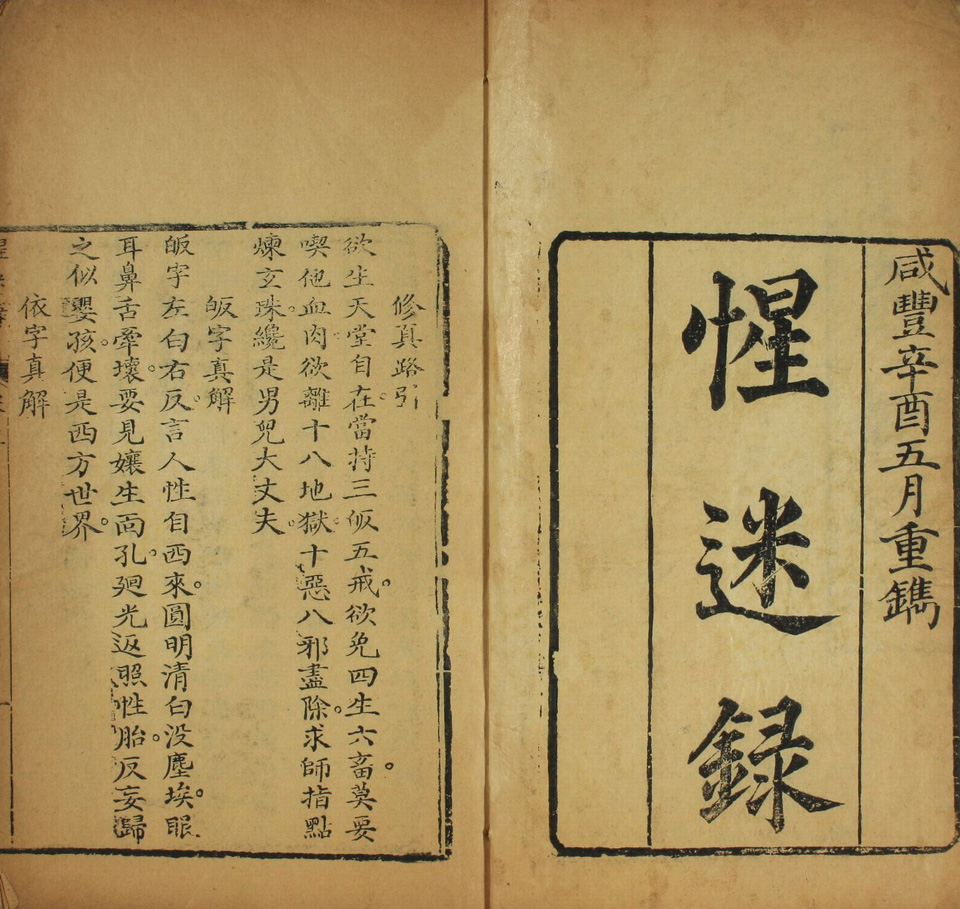 咸豐辛酉五月重鐫
惺迷録
修真路引
欲生天堂自在。當持三皈五戒。欲免四生六畜。莫要
喫他血肉欲離十八地獄。十惡八邪盡除。求師指點
煉玄珠。纔是男兒大丈夫。
皈字真解
皈字左白右反。言人性自西來。圓明清白没塵埃。眼
耳鼻舌牽壞。要見孃生面孔。廻光返照性胎。反妄歸
之似嬰孩。便是西方世界。
依字真解